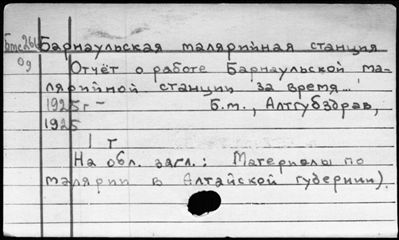 Бтс266 Барнаульская малярийная станция
09 Отчёт о работе Барнаульской ма-
лярийной станции за время...
1925г - Б.м., Алтгубздрав,
1925
1 т
На обл. загл.: Материалы по
малярии в Алтайской губернии).